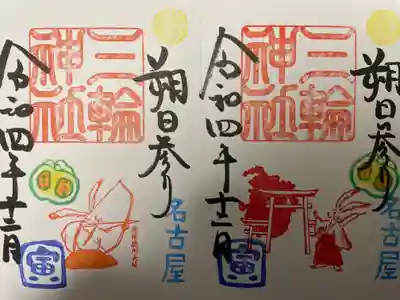 朔日参り
三輪
神社
名古屋
令和四年十二月
寅
朔日参り
三輪
神社
名古屋
令和四年十二月
寅